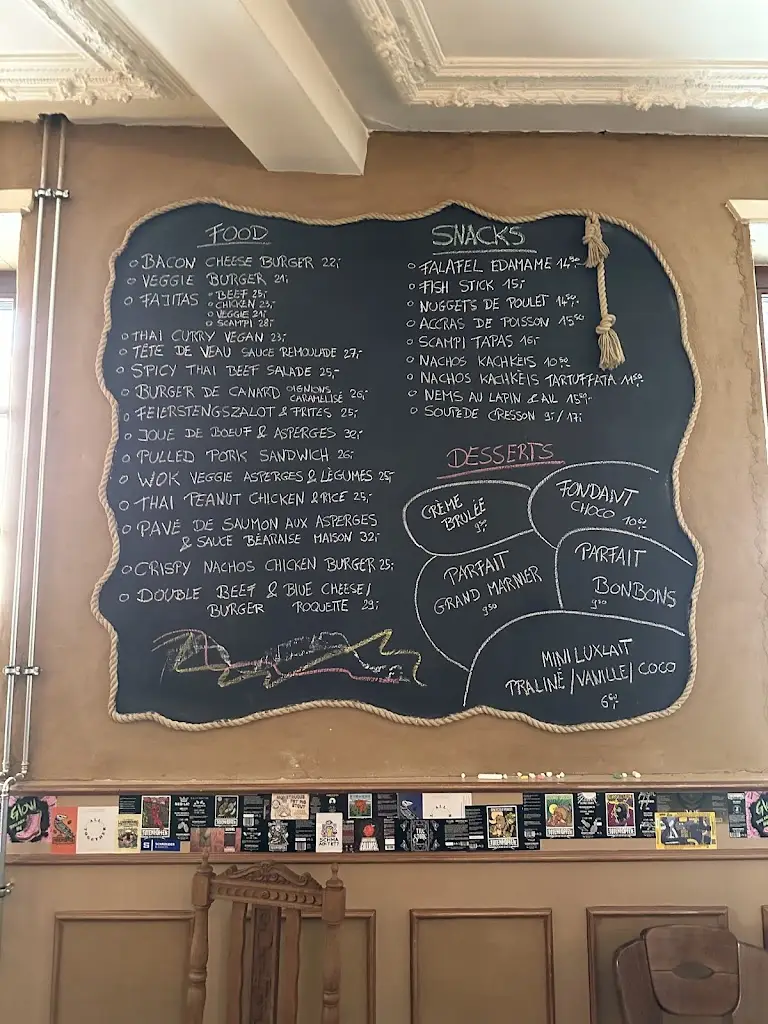 FOOD
BACON CHEESE BURGER 22,-
VEGGIE BURGER 21,-
FAJITAS BEEF 25,-
CHICKEN 23,-
VEGGIE 21,-
SCAMPI 28,-
THAI CURRY VEGAN 23,-
TÊTE DE VEAU SAUCE REMOULADE 27,-
SPICY THAI BEEF SALADE 25,-
BURGER DE CANARD OIGNIONS CARAMELISÉ 26,-
FEIERSTENGSZALOT & FRITES 25,-
JOUE DE BOEUF & ASPERGES 32,-
PULLED PORK SANDWICH 26,-
WOK VEGGIE ASPERGES & LÉGUMES 25,-
THAI PEANUT CHICKEN & RICE 25,-
PAVÉ DE SAUMON AUX ASPERGES
& SAUCE BÉARNAISE MAISON 32,-
CRISPY NACHOS CHICKEN BURGER 25,-
DOUBLE BEEF & BLUE CHEESE/
BURGER ROQUETTE 29,-
SNACKS
FALAFEL EDAMAME 14.50
FISH STICK 15,-
NUGGETS DE POULET 14.50
ACCRAS DE POISSON 15.50
SCAMPI TAPAS 16,-
NACHOS KACHKÉIS 10.50
NACHOS KACHKÉIS TARTUFFATA 11.50
NEMS AU LAPIN & AIL 15.50
SOUPE DE CRESSON 9,-/17,-
DESSERTS
CRÈME
BRULÉE
FONDANT
CHOCO 10.50
PARFAIT
GRAND MARNIER
9.50
PARFAIT
BONBONS
9.50
MINI LUXLAIT
PRALINÉ/VANILLE/COCO
6.50